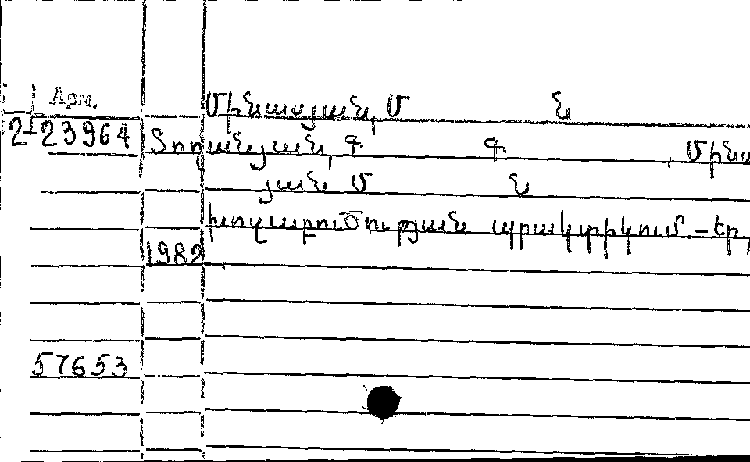 Арм.
Մինասյան, Մ Ն
2-23964 Տոռանյան, Գ Գ , Մինա
յան Մ Ն
խոզաբուծության պրակտիկում.-Եր,
1982
57653